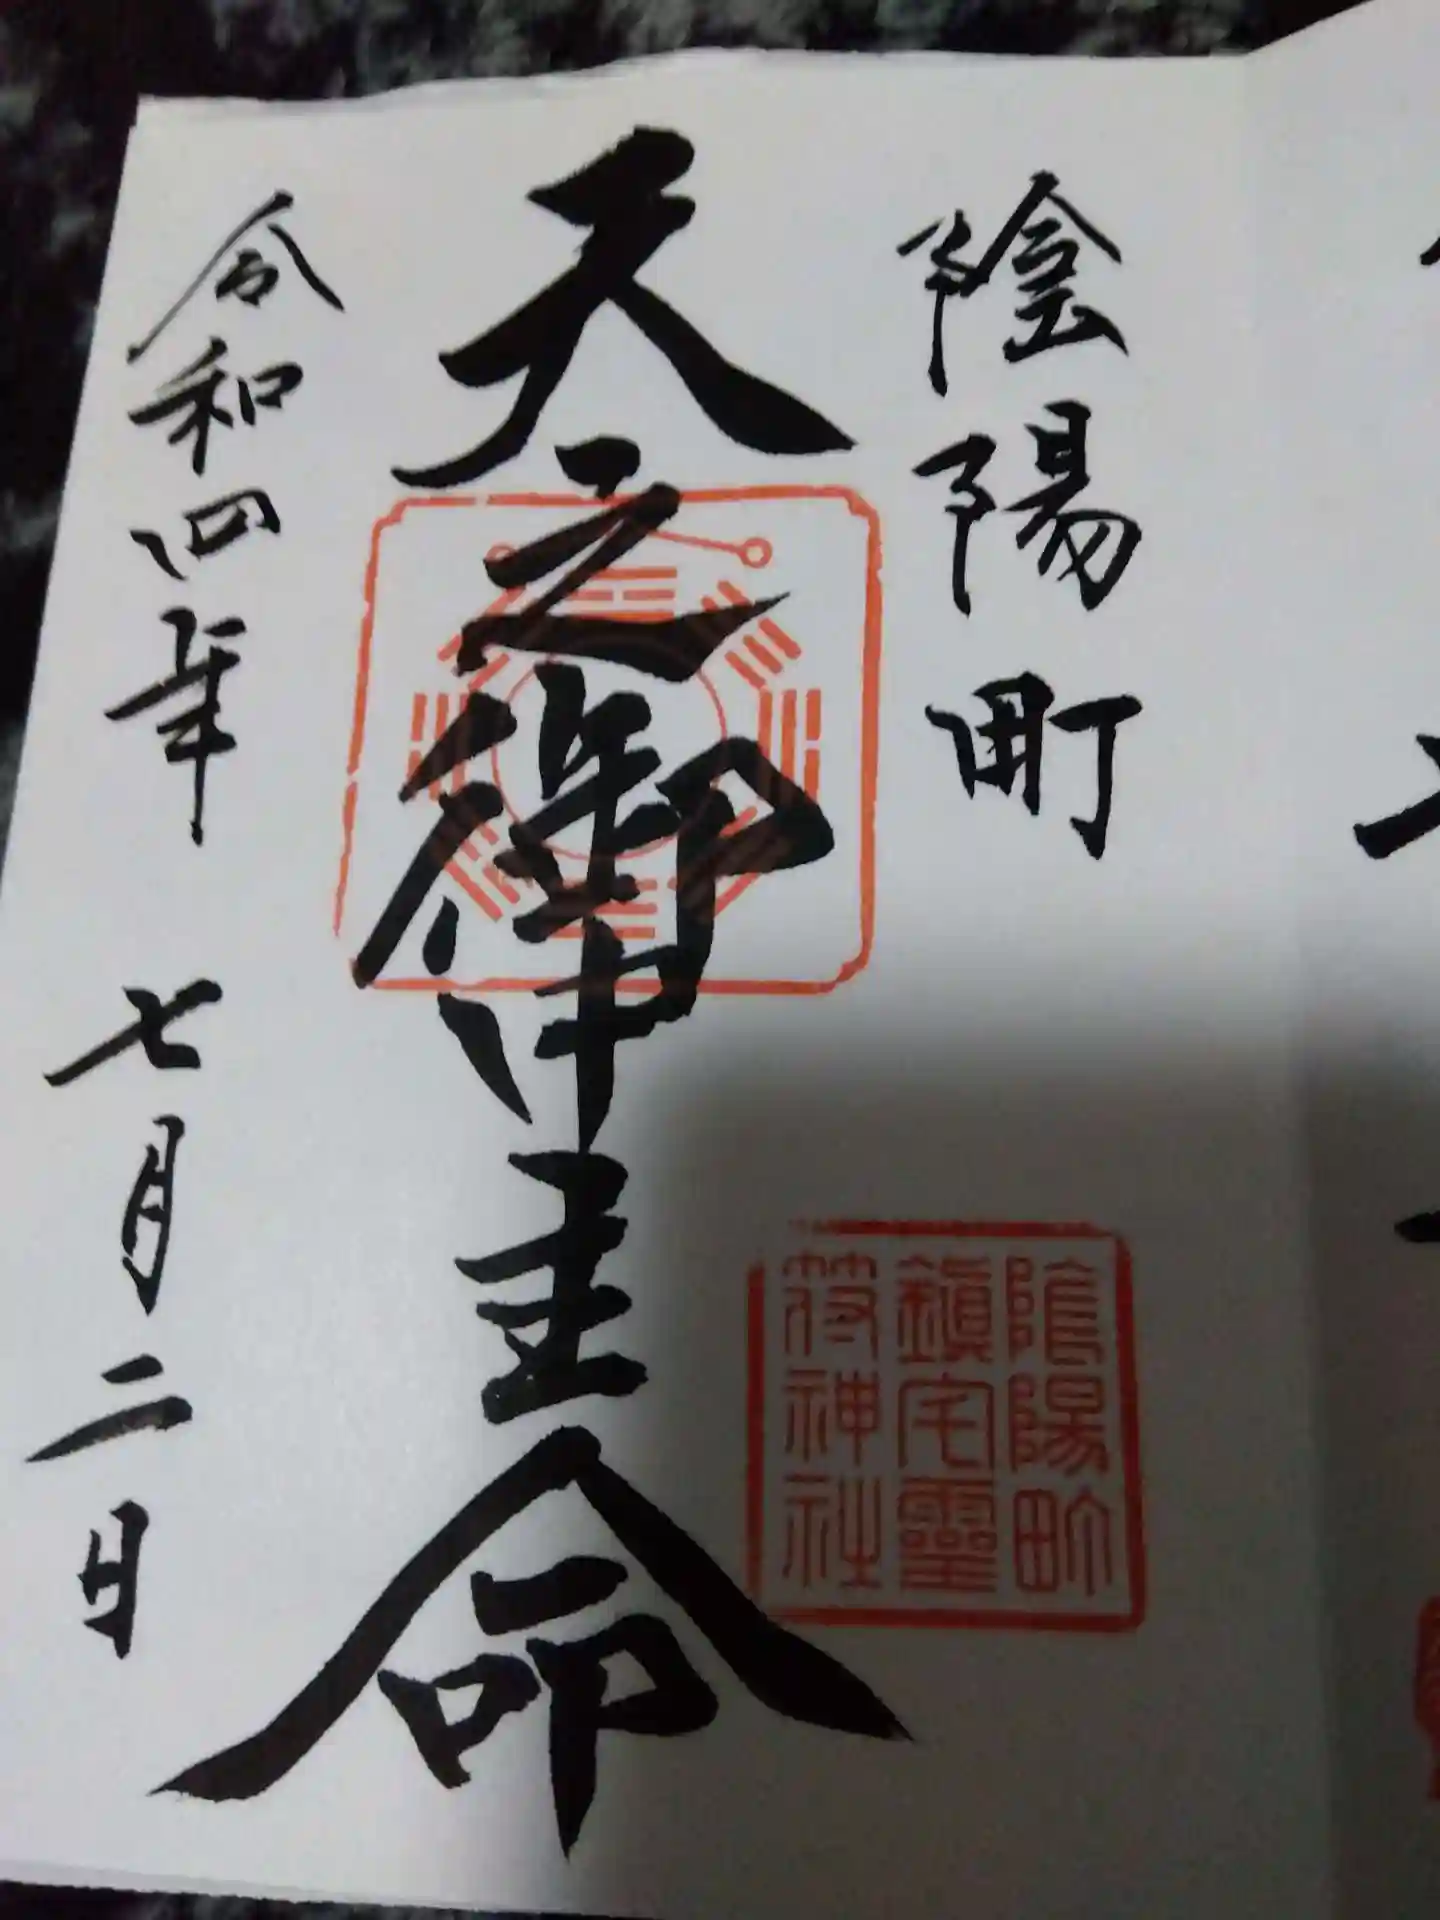 陰陽町
天之御中主命
令和四年 七月二日
陰陽町
鎮宅霊
符神社